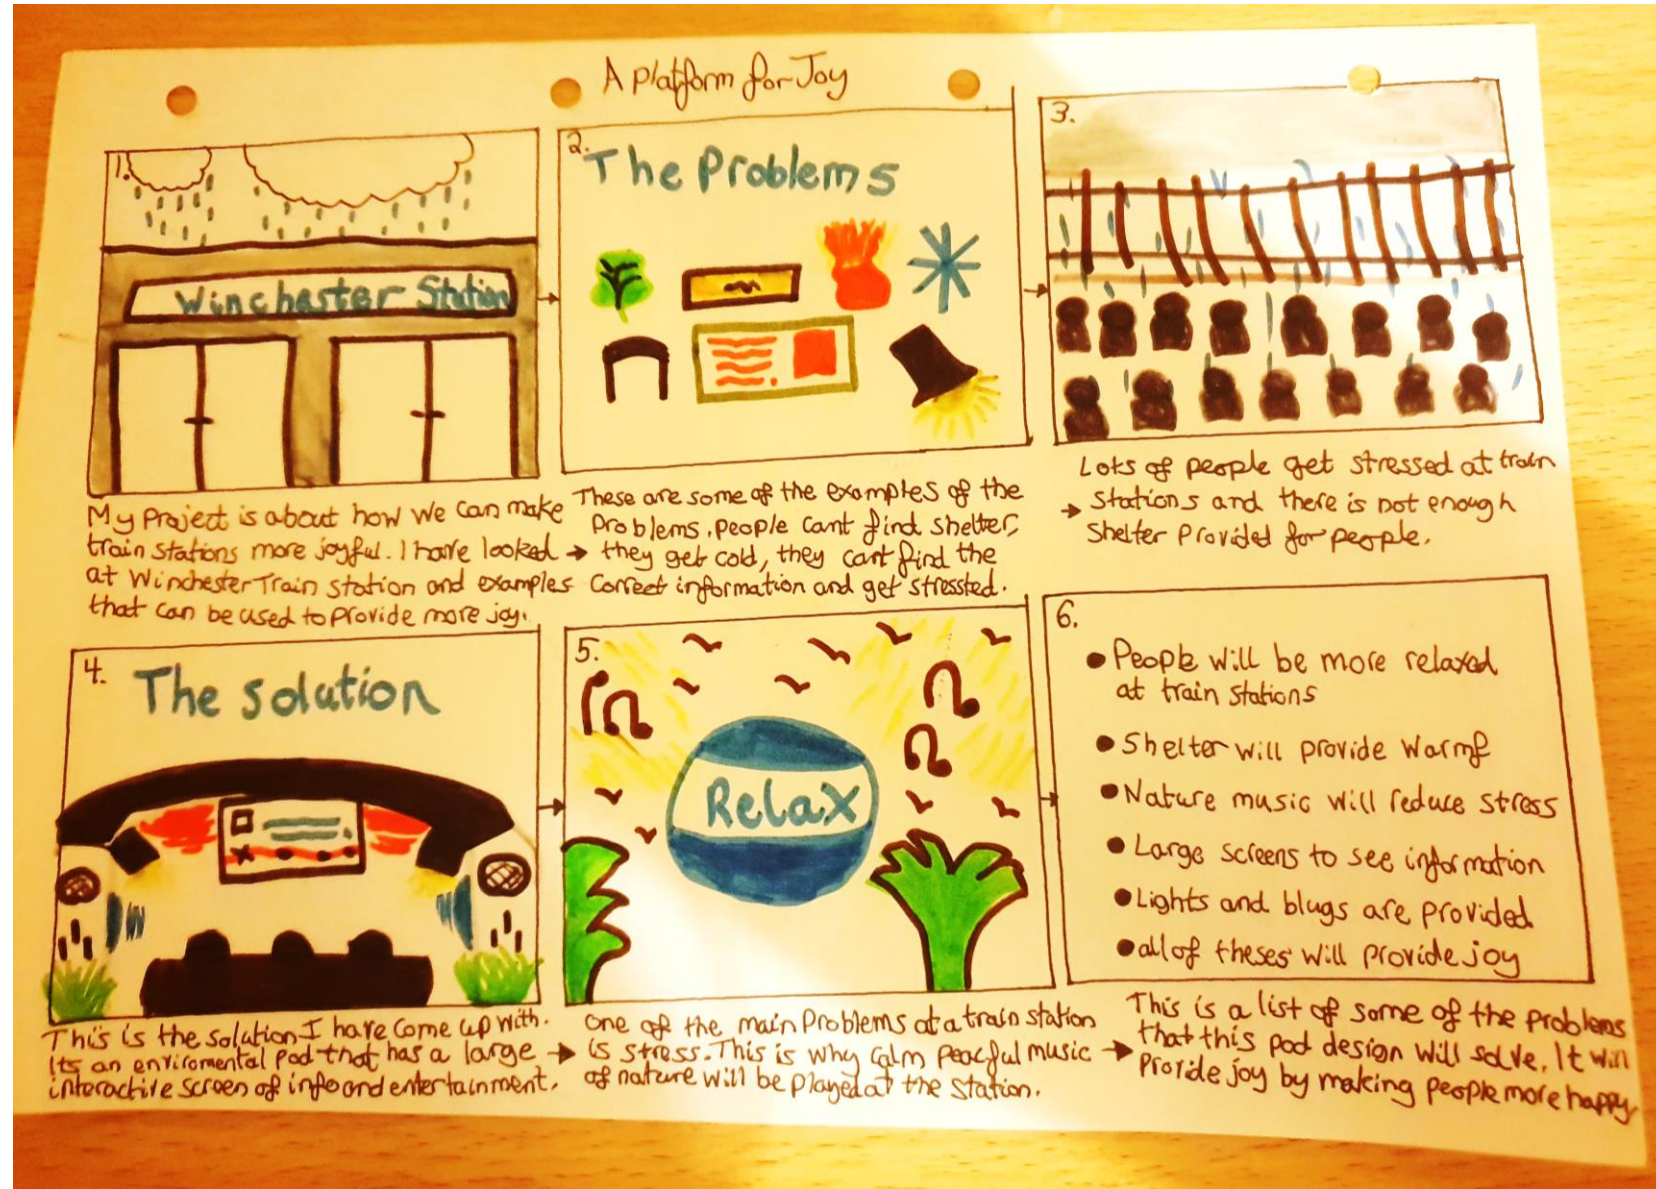 A Platform for Joy
1.
Winchester Station
My Project is about how we can make
train stations more joyful. I have looked
at Winchester Train station and examples
that can be used to provide more joy.
2.
The Problems
These are some of the examples of the
Problems. People cant find shelter,
they get cold, they cant find the
correct information and get stressted.
3.
Lots of people get stressed at train
stations and there is not enough
Shelter Provided for people.
4.
The solution
This is the solution I have come up with.
Its an enviromental pod that has a large
interactive screen of info and entertainment.
5.
Relax
One of the main Problems at a train station
is stress. This is why calm peacful music
of nature will be played at the station.
6.
People will be more relaxed
at train stations
Shelter will provide warmf
Nature music will reduce stress
Large screens to see information
Lights and blugs are provided
all of theses will provide joy
This is a list of some of the problems
that this pod design will solve. It will
Provide joy by making people more happy.